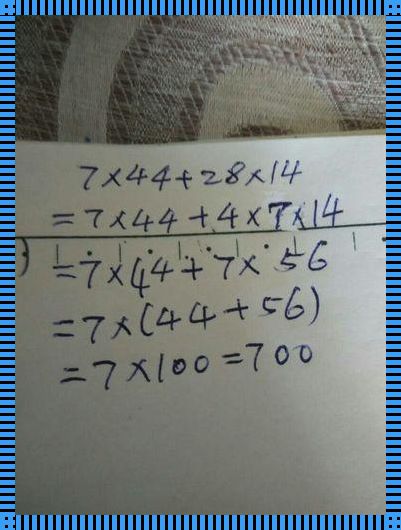 7×44+28×14
=7×44+4×7×14
=7×44+7×56
=7×(44+56)
=7×100=700